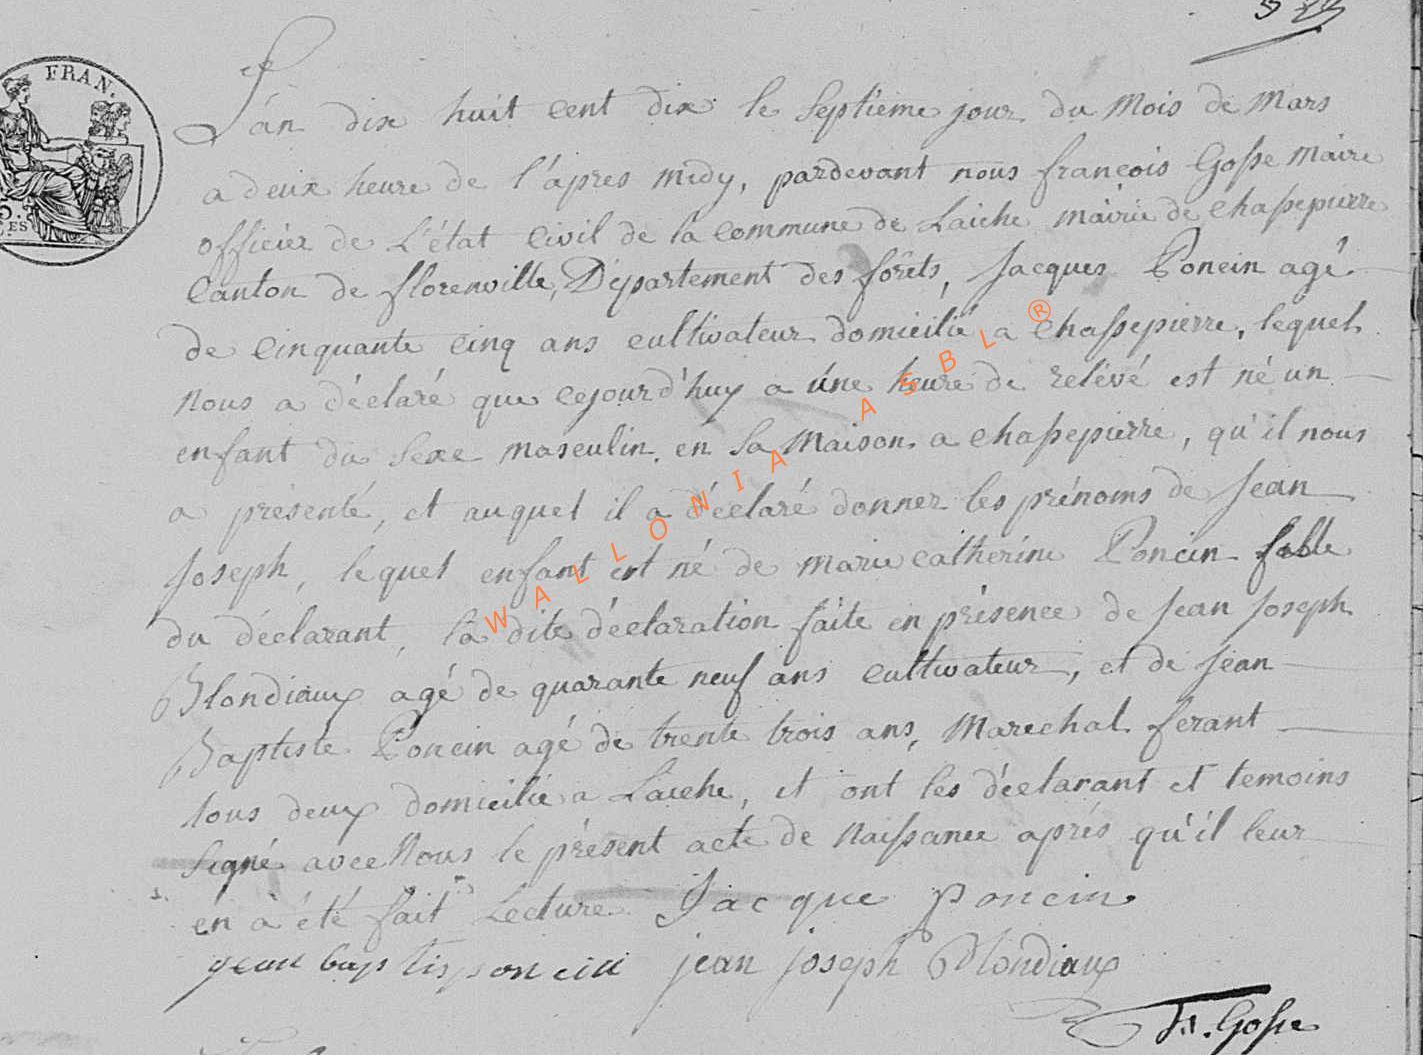 FRAN.
L'án dix huit cent dix le septieme jour du Mois de Mars
a deux heure de l'ápres midy, pardevant nous françois Gosse Maire
officier de L'état Civil de la Commune de Laiche mairie de chassepierre
Canton de florenville, Département des forêts, Jacques Poncin agé
de Cinquante cinq ans cultivateur domicilié a Chassepierre, lequel
nous a déclaré que cejourd'huy a úne heure de relévé est né un
enfant du Sexe masculin. en Sa Maison a chassepierre, qu'il nous
a présenté, et auquel il a déclaré donner les prénoms de Jean
Joseph, lequel enfant est né de marie catherine Poncin
du déclarant, la dite déclaration faite en présence de Jean Joseph
Blondiaux agé de quarante neuf ans cultivateur, et de Jean
Baptiste Poncin agé de trente trois ans, Marechal ferant
tous deux domicilié a Laiche, et ont les déclarant et temoins
Signé avec Nous le présent acte de Naissance aprés qu'il leur
en à été fait Lecture Jacque Poncin
jean baptis poncin jean joseph Blondiaux
Fr. Gosse
WALLONIA ASBL ®